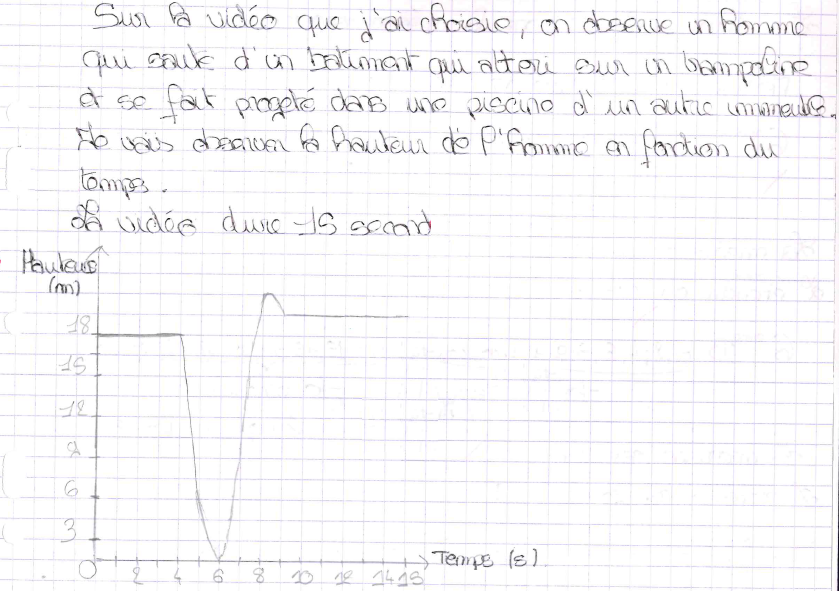 Sur la vidéo que j'ai choisie, on observe un homme
qui saute d'un batiment qui atteri sur un trampoline
et se fait progeté dans une piscine d'un autre immeuble.
Je vais observer la hauteur de l'homme en fonction du
temps.
La vidéo dure 15 second
Hauteur
(m)
18
15
12
9
6
3
0 2 4 6 8 10 12 14 15
Temps (s)